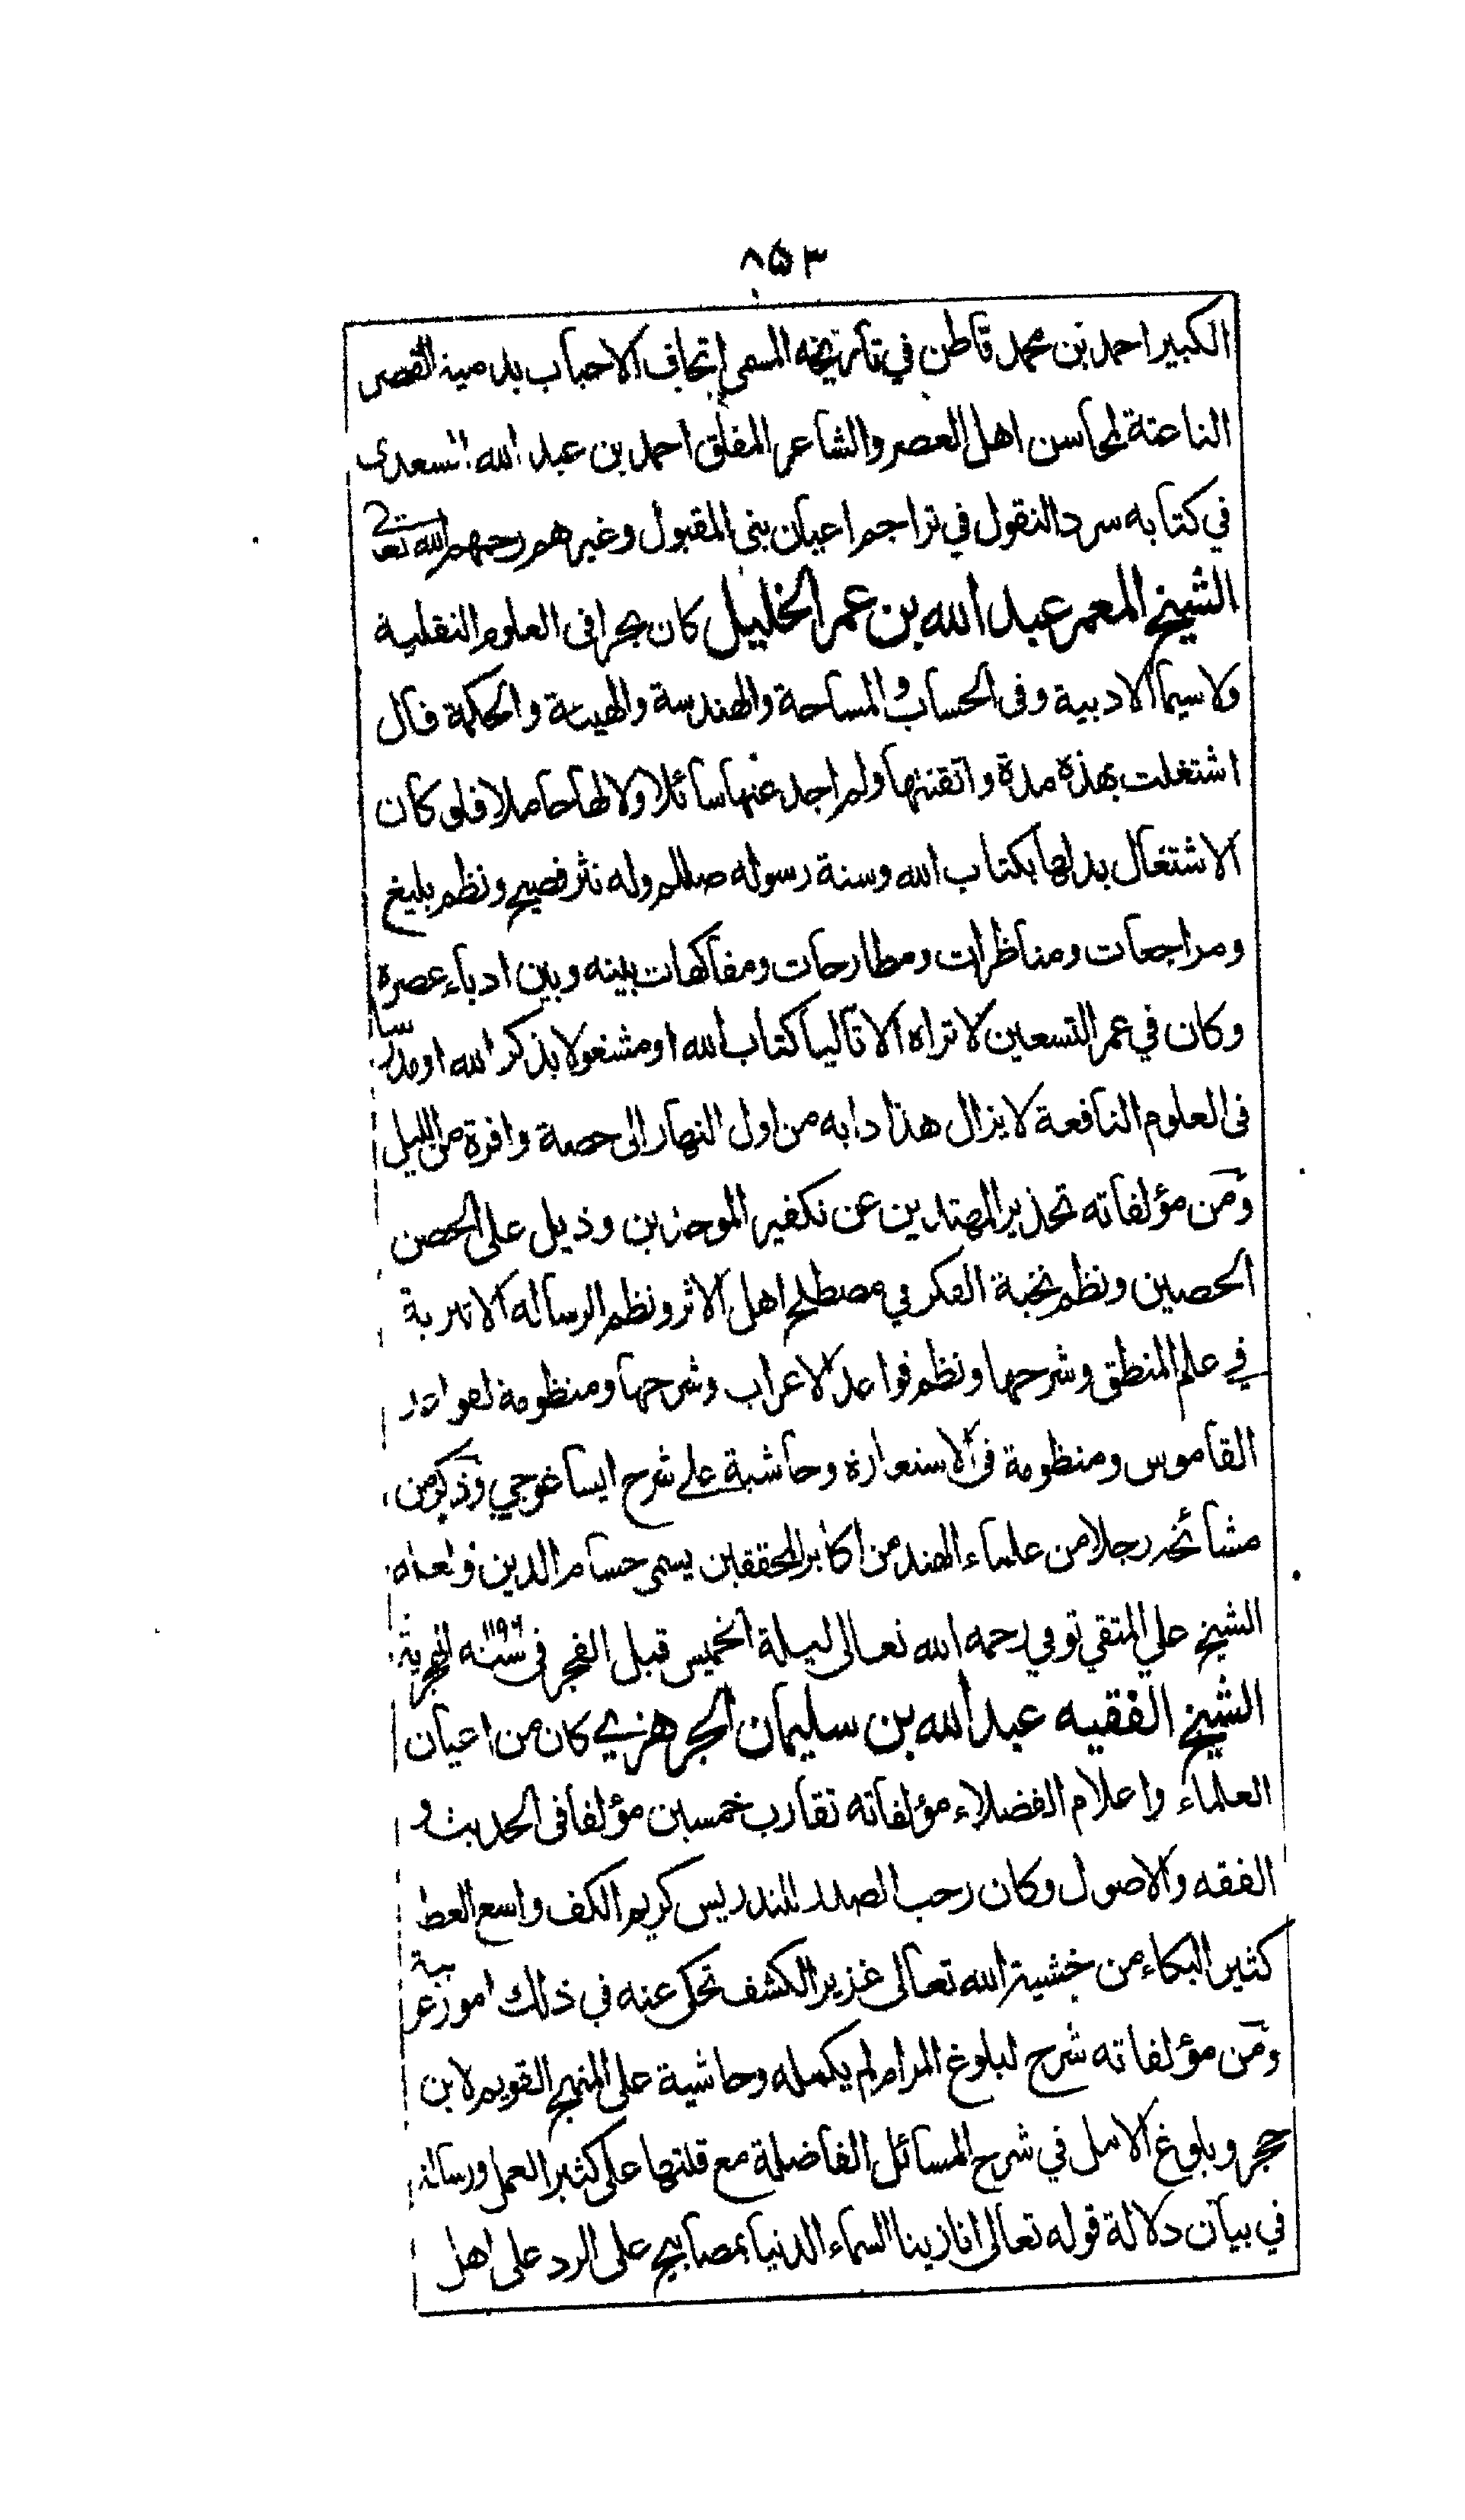 ٨٥٣
الكبير احمد بن محمد قاطن في تاريخه المسمى إتحاف الاحباب بدمية القصر
الناعتة لمحاسن اهل العصر والشاعر المفلق احمد بن عبد الله السعدى
في كتابه سرد النقول في تراجم اعيان بنى المقبول وغيرهم رحمهم الله تعالى
الشيخ المعمر عبد الله بن عمر الخليل كان بحرا فى العلوم النقلية
ولاسيما الادبية وفى الحساب والمساحة والهندسة والهيئة والحكمة قال
اشتغلت بهذه مدة واتقنتها ولم اجد عنها سائلا ولا لها حاملا فلو كان
الاشتغال بدلها بكتاب الله وسنة رسوله صللم وله نثر فصيح ونظم بليغ
ومراجعات ومناظرات ومطارحات ومفاكهات بينه وبين ادباء عصره
وكان في عمر التسعين لا تراه الا تاليا كتاب الله او مشغولا بذكر الله او مدرسا
فى العلوم النافعة لا يزال هذا دابه من اول النهار الى حصة وافرة من الليل
ومن مؤلفاته تحذير المهتدين عن تكفير الموحدين وذيل على الحصن
الحصين ونظم نخبة الفكر في مصطلح اهل الاثر ونظم الرسالة الاثيرية
في علم المنطق وشرحها ونظم قواعد الاعراب وشرحها ومنظومة لقواعد
القاموس ومنظومة فى الاستعارة وحاشية على شرح ايساغوجي وذكر من
مشائخه رجلا من علماء الهند من اكابر المحققين يسمى حسام الدين ولعله
الشيخ علي المتقي توفي رحمه الله تعالى ليلة الخميس قبل الفجر فى سنة ١١٩٦ الهجرية
الشيخ الفقيه عبد الله بن سليمان الجرهزي كان من اعيان
العلماء واعلام الفضلاء مؤلفاته تقارب خمسين مؤلفا فى الحديث و
الفقه والاصول وكان رحب الصدر للتدريس كريم الكف واسع العطا
كثير البكاء من خشية الله تعالى غزير الكشف تحكى عنه في ذلك امور غريبة
ومن مؤلفاته شرح لبلوغ المرام لم يكمله وحاشية على المنهج القويم لابن
حجر وبلوغ الامل في شرح المسائل الفاضلة مع قلتها على كثير العمل ورسالة
في بيان دلالة قوله تعالى انا زينا السماء الدنيا بمصابيح على الرد على اهل